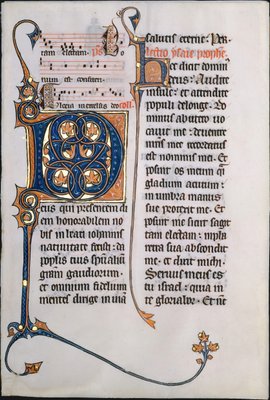 tam electam. ps
trum est confiteri.
Gloria in excelsis deo coll.
Deus qui presentem di
em honorabilem no
bis in beati iohannis
natiuitate fecisti: da
populis tuis spiritualium
gratiam gaudiorum.
et omnium fidelium
mentes dirige in uiam
salutis eterne. Per
lectio ysaie prophe
Hec dicit dominus
deus. Audite
insule: et attendite
populi de longe. Do
minus ab utero uo
cauit me: de uentre
mris mee recordatus
est nominis mei. Et
posuit os meum quasi
gladium acutum:
in umbra manus
sue protexit me. Et
posuit me sicut sagit
tam electam: in pha
retra sua abscondit
me. et dixit michi:
Seruus meus es
tu israel: quia in
te gloriabor. Et nunc